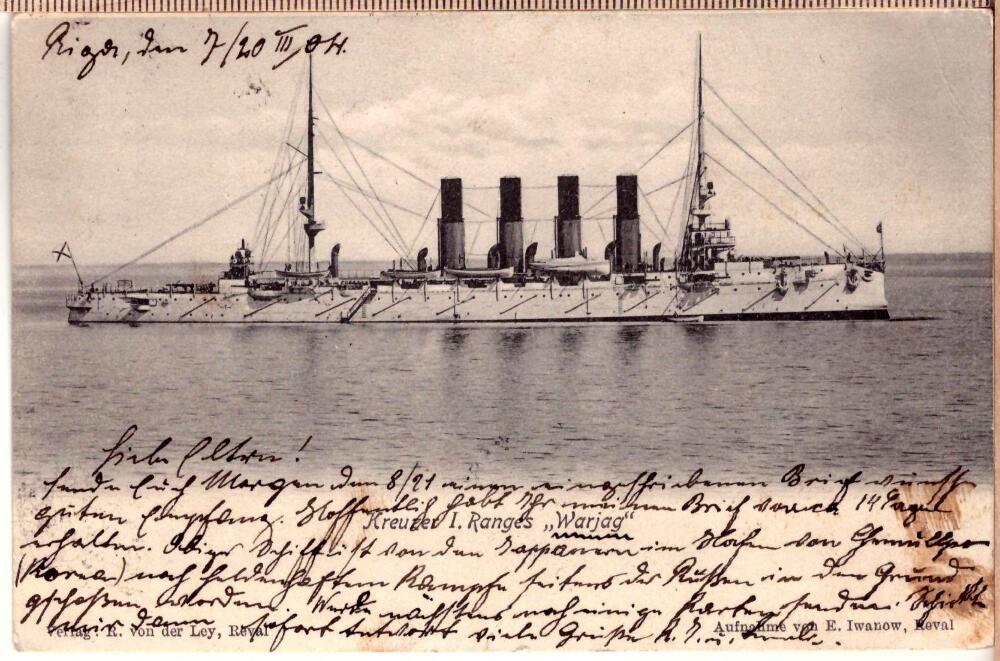 Riga, den 7/20 III 04.
Liebe Eltern!
sende Euch Morgen den 8/21 einen eingeschriebenen Brief wünsche
guten Empfang. Hoffentlich habt Ihr meinen Brief vor ca 14 Tagen
Kreuzer I. Ranges „Warjag“
erhalten. Obiges Schiff ist von den Jappanern im Hafen von Chemulpo
(Korea) nach heldenhaftem Kampfe seitens der Rußen in den Grund
geschoßen worden. Werde nächstens noch einige Karten senden. Schickt
mir dann sofort Antwort viele Grüße
Verlag: R. von der Ley, Reval
Aufnahme von E. Iwanow, Reval